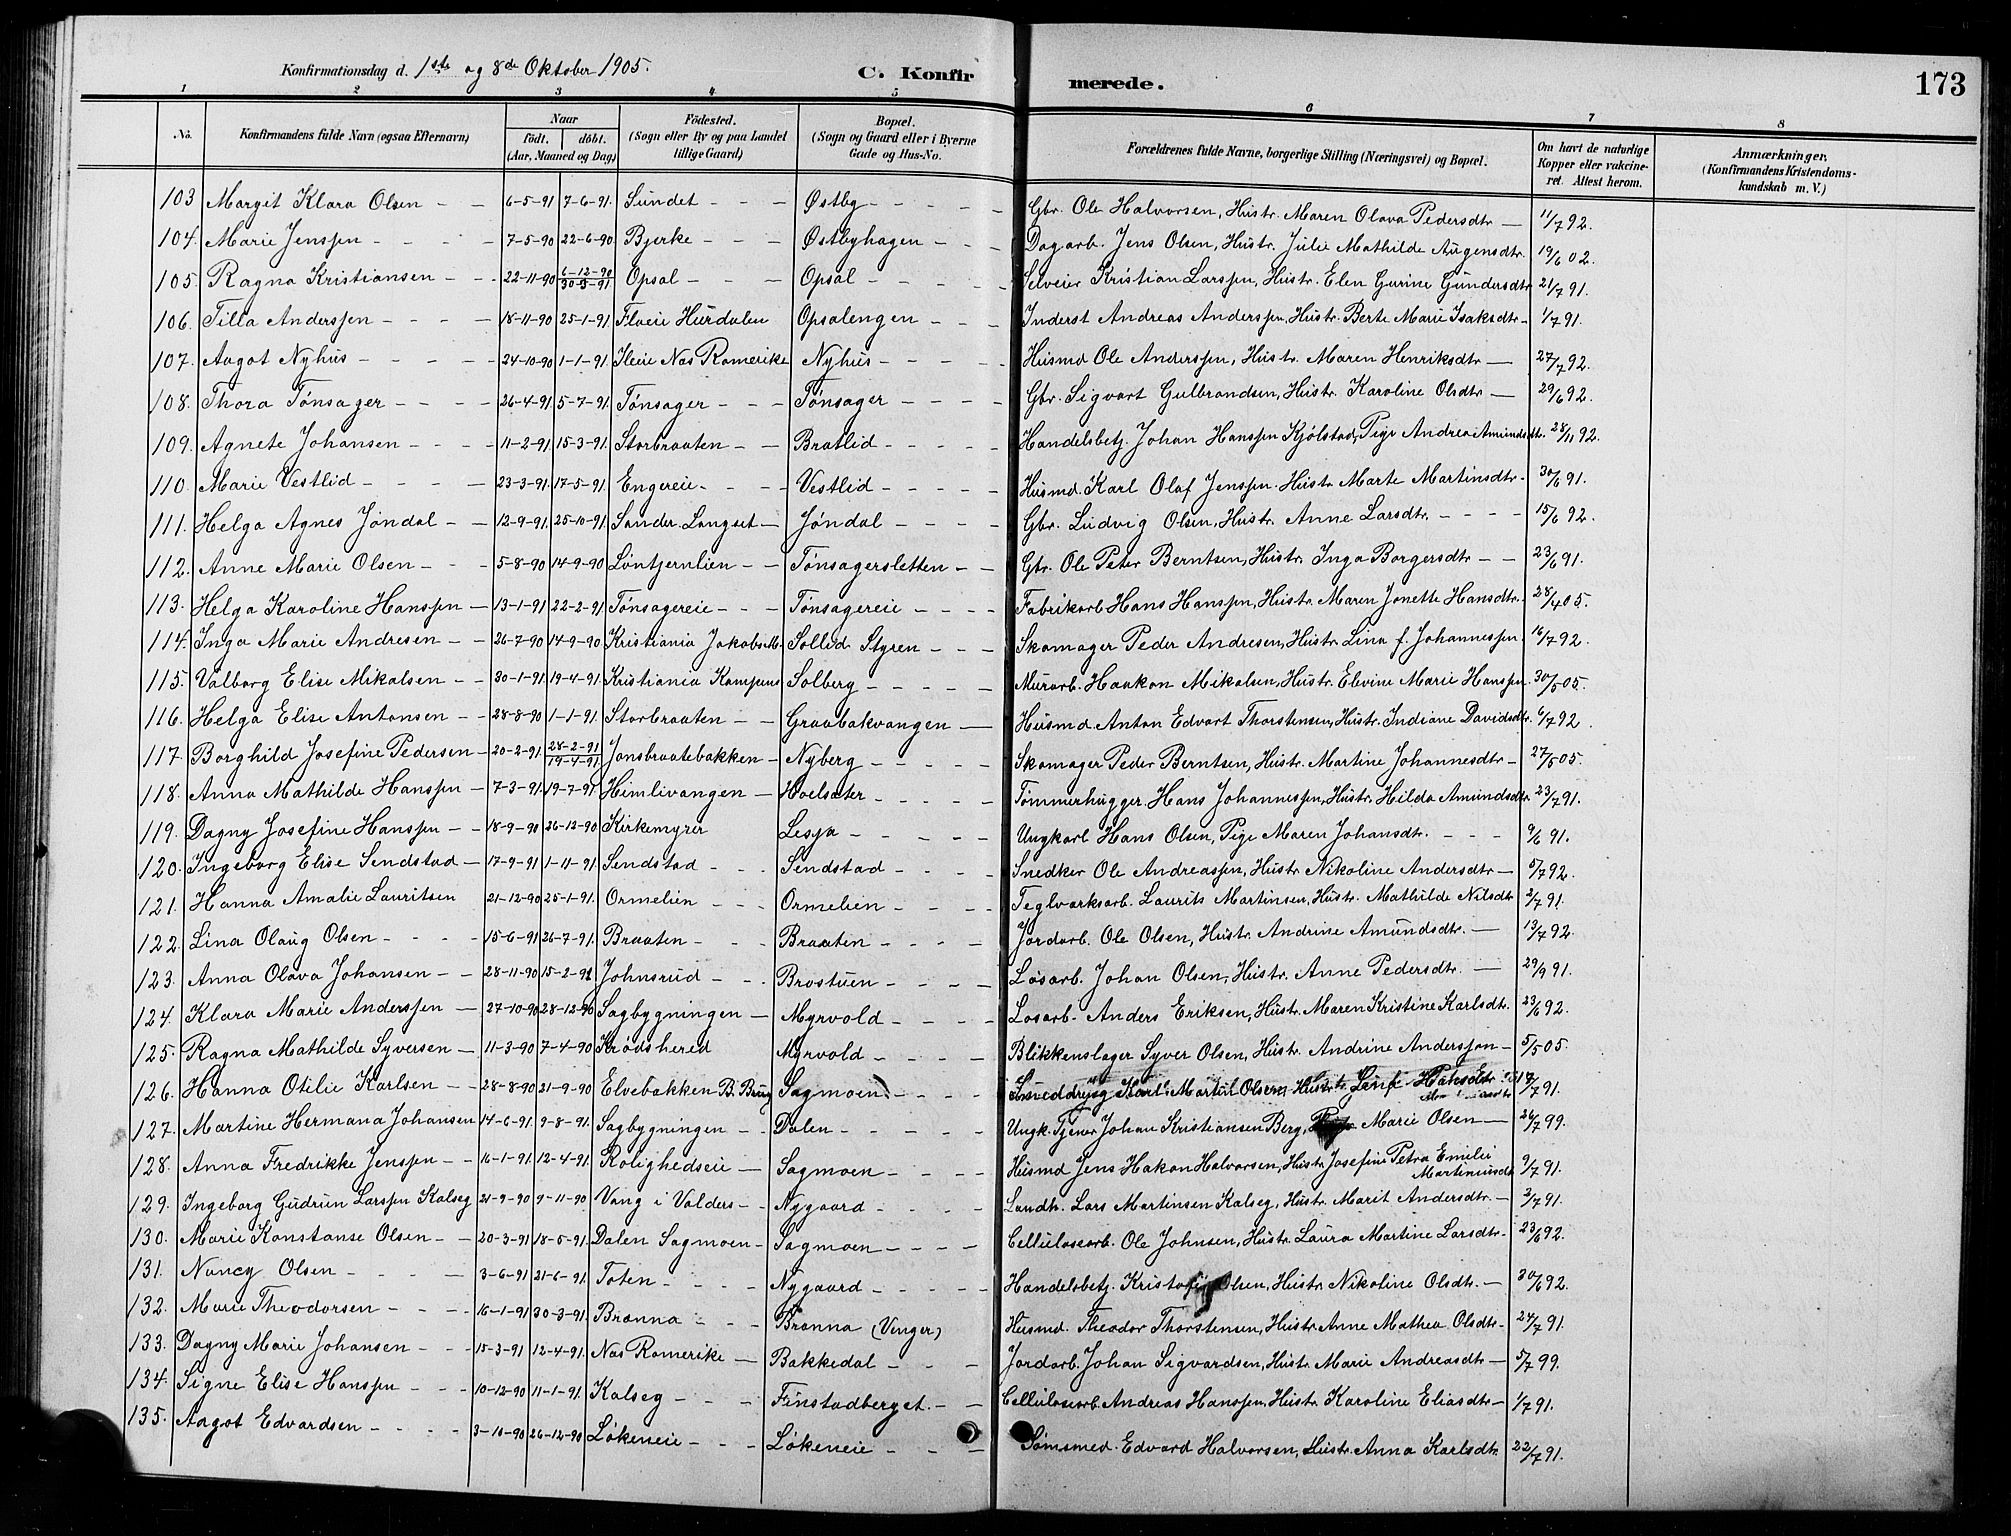 Konfirmationsdag d. 1ste og 8de Oktober 1905. C. Konfirmerede. 173
1 2 3 4 5 6 7 8
No. Konfirmandens fulde Navn (ogsaa Efternavn) Naar födt. döbt. (Aar, Maaned og Dag) Födested. (Sogn eller By og paa Landet tillige Gaard) Bopæl. (Sogn og Gaard eller i Byerne Gade og Hus-No. Forældrenes fulde Navne, borgerlige Stilling (Næringsvei) og Bopæl. Om havt de naturlige Kopper eller vakcineret. Attest herom. Anmærkninger. (Konfirmandens Kristendomskundskab m. V.)
103 Margit Klara Olsen 6-5-91 7-6-91. Sundet Østby Gbr. Ole Halvorsen, Hustr. Maren Olava Pedersdtr 11/7 92.
104. Marie Jenssen 7-5-90 22-6-90 Bjerke Østbyhagen Dagarb. Jens Olsen, Hustr. Julie Mathilde Augensdtr. 19/6 02.
105. Ragna Kristiansen 22-11-90 6-12-90 30-3-91 Opsal Opsal Selveier Kristian Larssen, Hustr. Elen Gurine Gundersdtr 21/7 91.
106. Tilla Anderssen 18-11-90 25-1-91 Flaeie Hurdalen Opsalengen Inderst Andreas Anderssen, Hustr. Berte Marie Isaksdtr 1/7 91.
107. Aagot Nyhus 24-10-90 1-1-91. Ileie Nas Romerike Nyhus Husmd Ole Anderssen, Hustr. Maren Henriksdtr 27/7 92.
108. Thora Tønsager 26-4-91 5-7-91. Tønsager Tønsager Gbr. Sigvart Gulbrandsen, Hustr. Karoline Olsdtr 29/6 92.
109. Agnete Johansen 11-2-91 15-3-91. Storbraaten Bratlid Handelsbetj. Johan Hanssen Kjølstad, Pige Andrea Amundsdtr. 28/11 92.
110. Marie Vestlid 23-3-91. 17-5-91. Engereie Vestlid Husmd. Karl Olaf Jenssen. Hustr Marte Martinsdtr 30/6 91.
111. Helga Agnes Jøndal 12-9-91. 25-10-91. Sander. Langset Jøndal Gbr. Ludvig Olsen, Hustr. Anne Larsdtr. 15/6 92.
112. Anne Marie Olsen 5-8-90 14-9-90 Løntjernlien Tønsagersletten Gbr. Ole Peter Berntsen, Hustr. Inga Borgersdtr 23/6 91.
113. Helga Karoline Hanssen 13-1-91 22-2-91. Tønsagereie Tønsagereie Fabrikarb Hans Hanssen, Hustr. Maren Jonette Hansdtr. 28/4 05.
114. Inga Marie Andresen 26-7-90 14-9-90 Kristiania Jakobs M. Sollid Styren Skomager Peder Andresen, Hustr. Lina f. Johannessen 16/7 92.
115. Valborg Elise Mikalsen 30-1-91. 19-4-91. Kristiania Kampens Solberg Murarb. Haakon Mikalsen, Hustr. Elevine Marie Hanssen. 30/5 05.
116. Helga Elise Antonsen 28-8-90 1-1-91. Storbraaten Graabakvangen Husmd. Anton Edvart Thorstensen, Hustr. Indiane Davidsdtr. 6/7 92.
117. Borghild Josefine Pedersen 20-2-91. 28-2-91 19-4-91. Jonsbraatebakken Nyberg Skomager Peder Berntsen, Hustr. Martine Johannesdtr 27/5 05.
118. Anna Mathilde Hanssen 7-3-91. 19-7-91. Himlivangen Hoelsæter Tømmerhugger. Hans Johannessen, Hustr. Hilda Amundsdtr. 23/7 91.
119. Dagny Josefine Hanssen 18-9-90 26-12-90 Kirkemyrer Lesja Ungkarl Hans Olsen, Pige Maren Johansdtr. 9/6 91.
120. Ingeborg Elise Sendstad 17-9-91 1-11-91. Sendstad Sendstad Snedker Ole Andreassen, Hustr. Nikoline Andersdtr 5/7 92.
121. Hanna Amalie Lauritsen 21-12-90 25-1-91. Ormelien Ormelien Teglværksarb. Laurits Martinsen, Hustr. Mathilde Nilsdtr 2/7 91.
122. Lina Olaug Olsen 15-6-91 26-7-91. Braaten Braaten Jordarb. Ole Olsen, Hustr. Andrine Amundsdtr. 13/7 92.
123. Anna Olava Johansen 28-11-90 15-2-91 Johnsrud Brostuen Løsarb. Johan Olsen, Hustr. Anne Pedersdtr. 29/9 91.
124. Klara Marie Anderssen 27-10-90 28-12-90 Sagbygningen Myrvold Løsarb. Anders Eriksen, Hustr. Maren Kristine Karlsdtr. 23/6 92.
125. Ragna Mathilde Syversen 11-3-90 7-4-90 Krødshered Myrvold Blikkenslager Syver Olsen, Hustr. Andrine Anderssen 5/5 05.
126. Hanna Otilie Karlsen 28-8-90 21-9-90 Elvebakken B. Brug Sagmoen Karl Martin Olsen, Hustr. 7 91.
127. Martine Hermana Johansen 14-6-91. 9-8-91. Sagbygningen Dalen Ungk. Tjener Johan Kristiansen Berg, Marie Olsen 26/7 99.
128. Anna Fredrikke Jenssen 16-1-91. 12-4-91. Rolighedseie Sagmoen Husmd Jens Hakon Halvorsen, Hustr Josefine Petra Emilei Martiniusdtr 9/7 91.
129. Ingeborg Gudrun Larssen Kalseg 21-9-90 9-11-90 Vang i Valders Nygaard Landh. Lars Martinsen Kalseg, Hustr. Marit Andersdtr. 2/7 91.
130. Marie Konstanse Olsen 20-3-91 18-5-91. Dalen Sagmoen Sagmoen Cellulosearb. Ole Johnsen, Hustr. Laura Martine Larsdtr. 23/6 92.
131. Nancy Olsen 3-6-91 21-6-91. Toten Nygaard Handelsbetj. Olsen, Hustr. Nikoline Olsdtr. 30/6 92.
132. Marie Theodorsen 16-1-91 30-3-91 Branna Branna (Vinger) Husmd. Theodor Thorstensen, Hustr. Anne Mathea Olsdtr. 24/7 91.
133. Dagny Marie Johansen 15-3-91 12-4-91. Nas Romerike Bakkedal Jordarb. Johan Sigvardsen, Hustr. Marie Andreasdtr 5/7 99.
134. Signe Elise Hanssen 10-12-90 11-1-91. Kalseg Finstadberget. Cellulosearb. Andreas Hanssen, Hustr. Karoline Eliasdtr 1/7 91.
135. Aagot Edvardsen 3-10-90 26-12-90 Løkeneie Løkeneie Sømsmed. Edvard Halvorsen, Hustr. Anna Karlsdtr. 22/7 91.